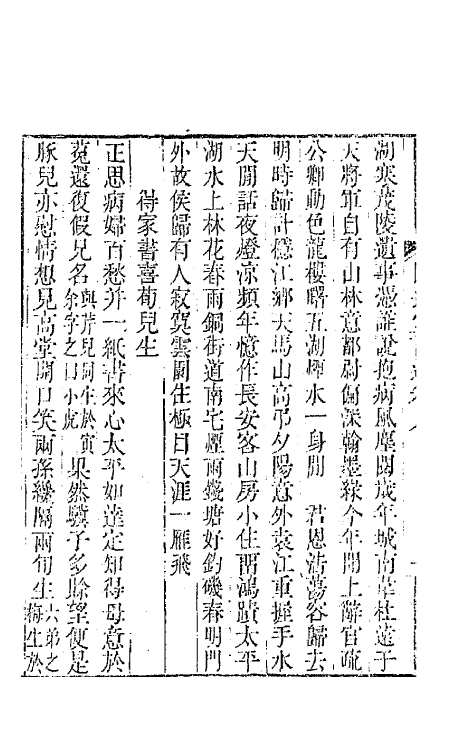 湖寒茂陵遺事憑誰說抱病風塵閱歲年城南韋杜遠于
天將軍自有山林意都尉偏深翰墨緣今年閤上辭官疏
公卿動色龍樓曙五湖煙水一身閒 君恩浩蕩容歸去
明時歸計穩江鄉天馬山高弔夕陽意外袁江重握手水
天閒話夜燈涼頻年憶作長安客山房小住留鴻蹟太平
湖水上林花春雨銅街道南宅煙雨錢塘好釣磯春明門
外故侯歸有人寂寞雲關住極目天涯一雁飛
得家書喜荀兒生
正思病婦百愁并一紙書來心太平如達定知得母意於
菟還復假兄名與芹兒同生於寅余字之曰小虎果然驥子多賒望便是
豚兒亦慰情想見高堂開口笑兩孫纔隔兩旬生六弟之梅生於